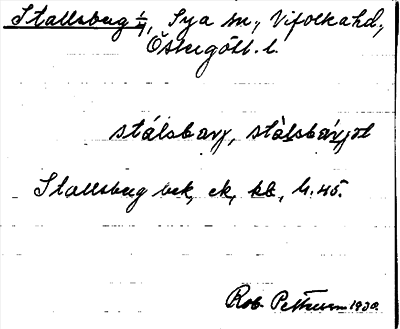 Stallsberg 1/1, Sya sn., Vifolkahd,
Östergötl. l.
stálsbarj, stàlsbárjət
Stallsberg bek, ek, kb, h. 45.
Rob. Pettersson 1930